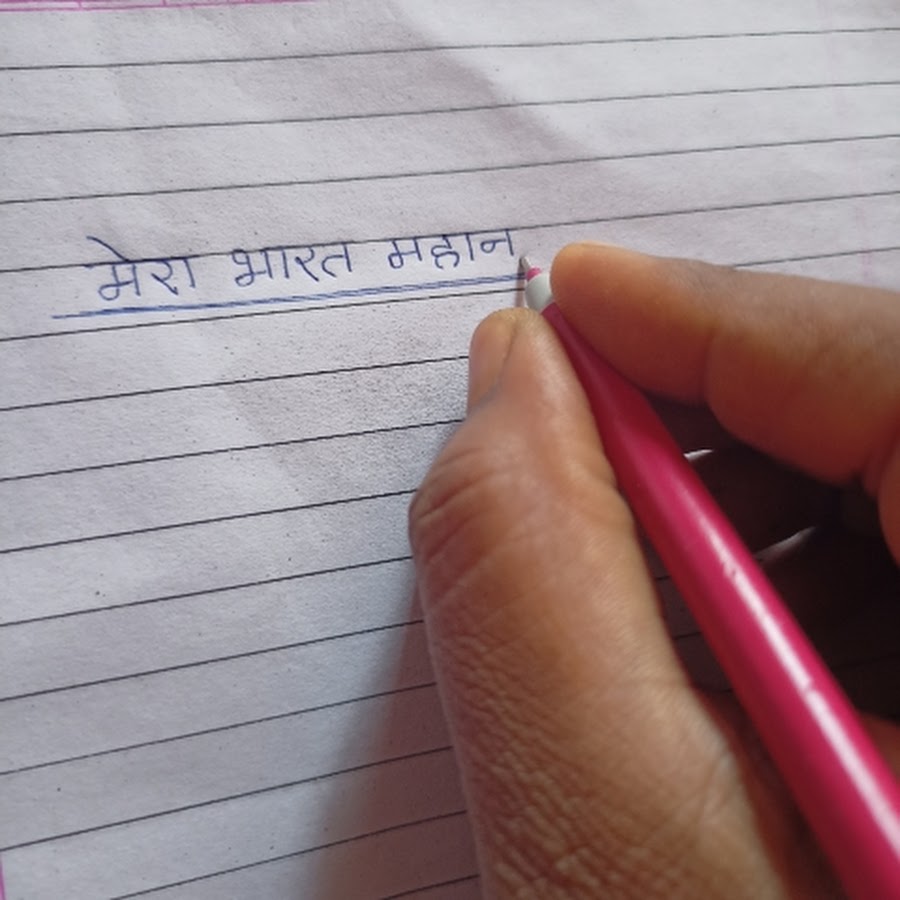 मेरा भारत महान